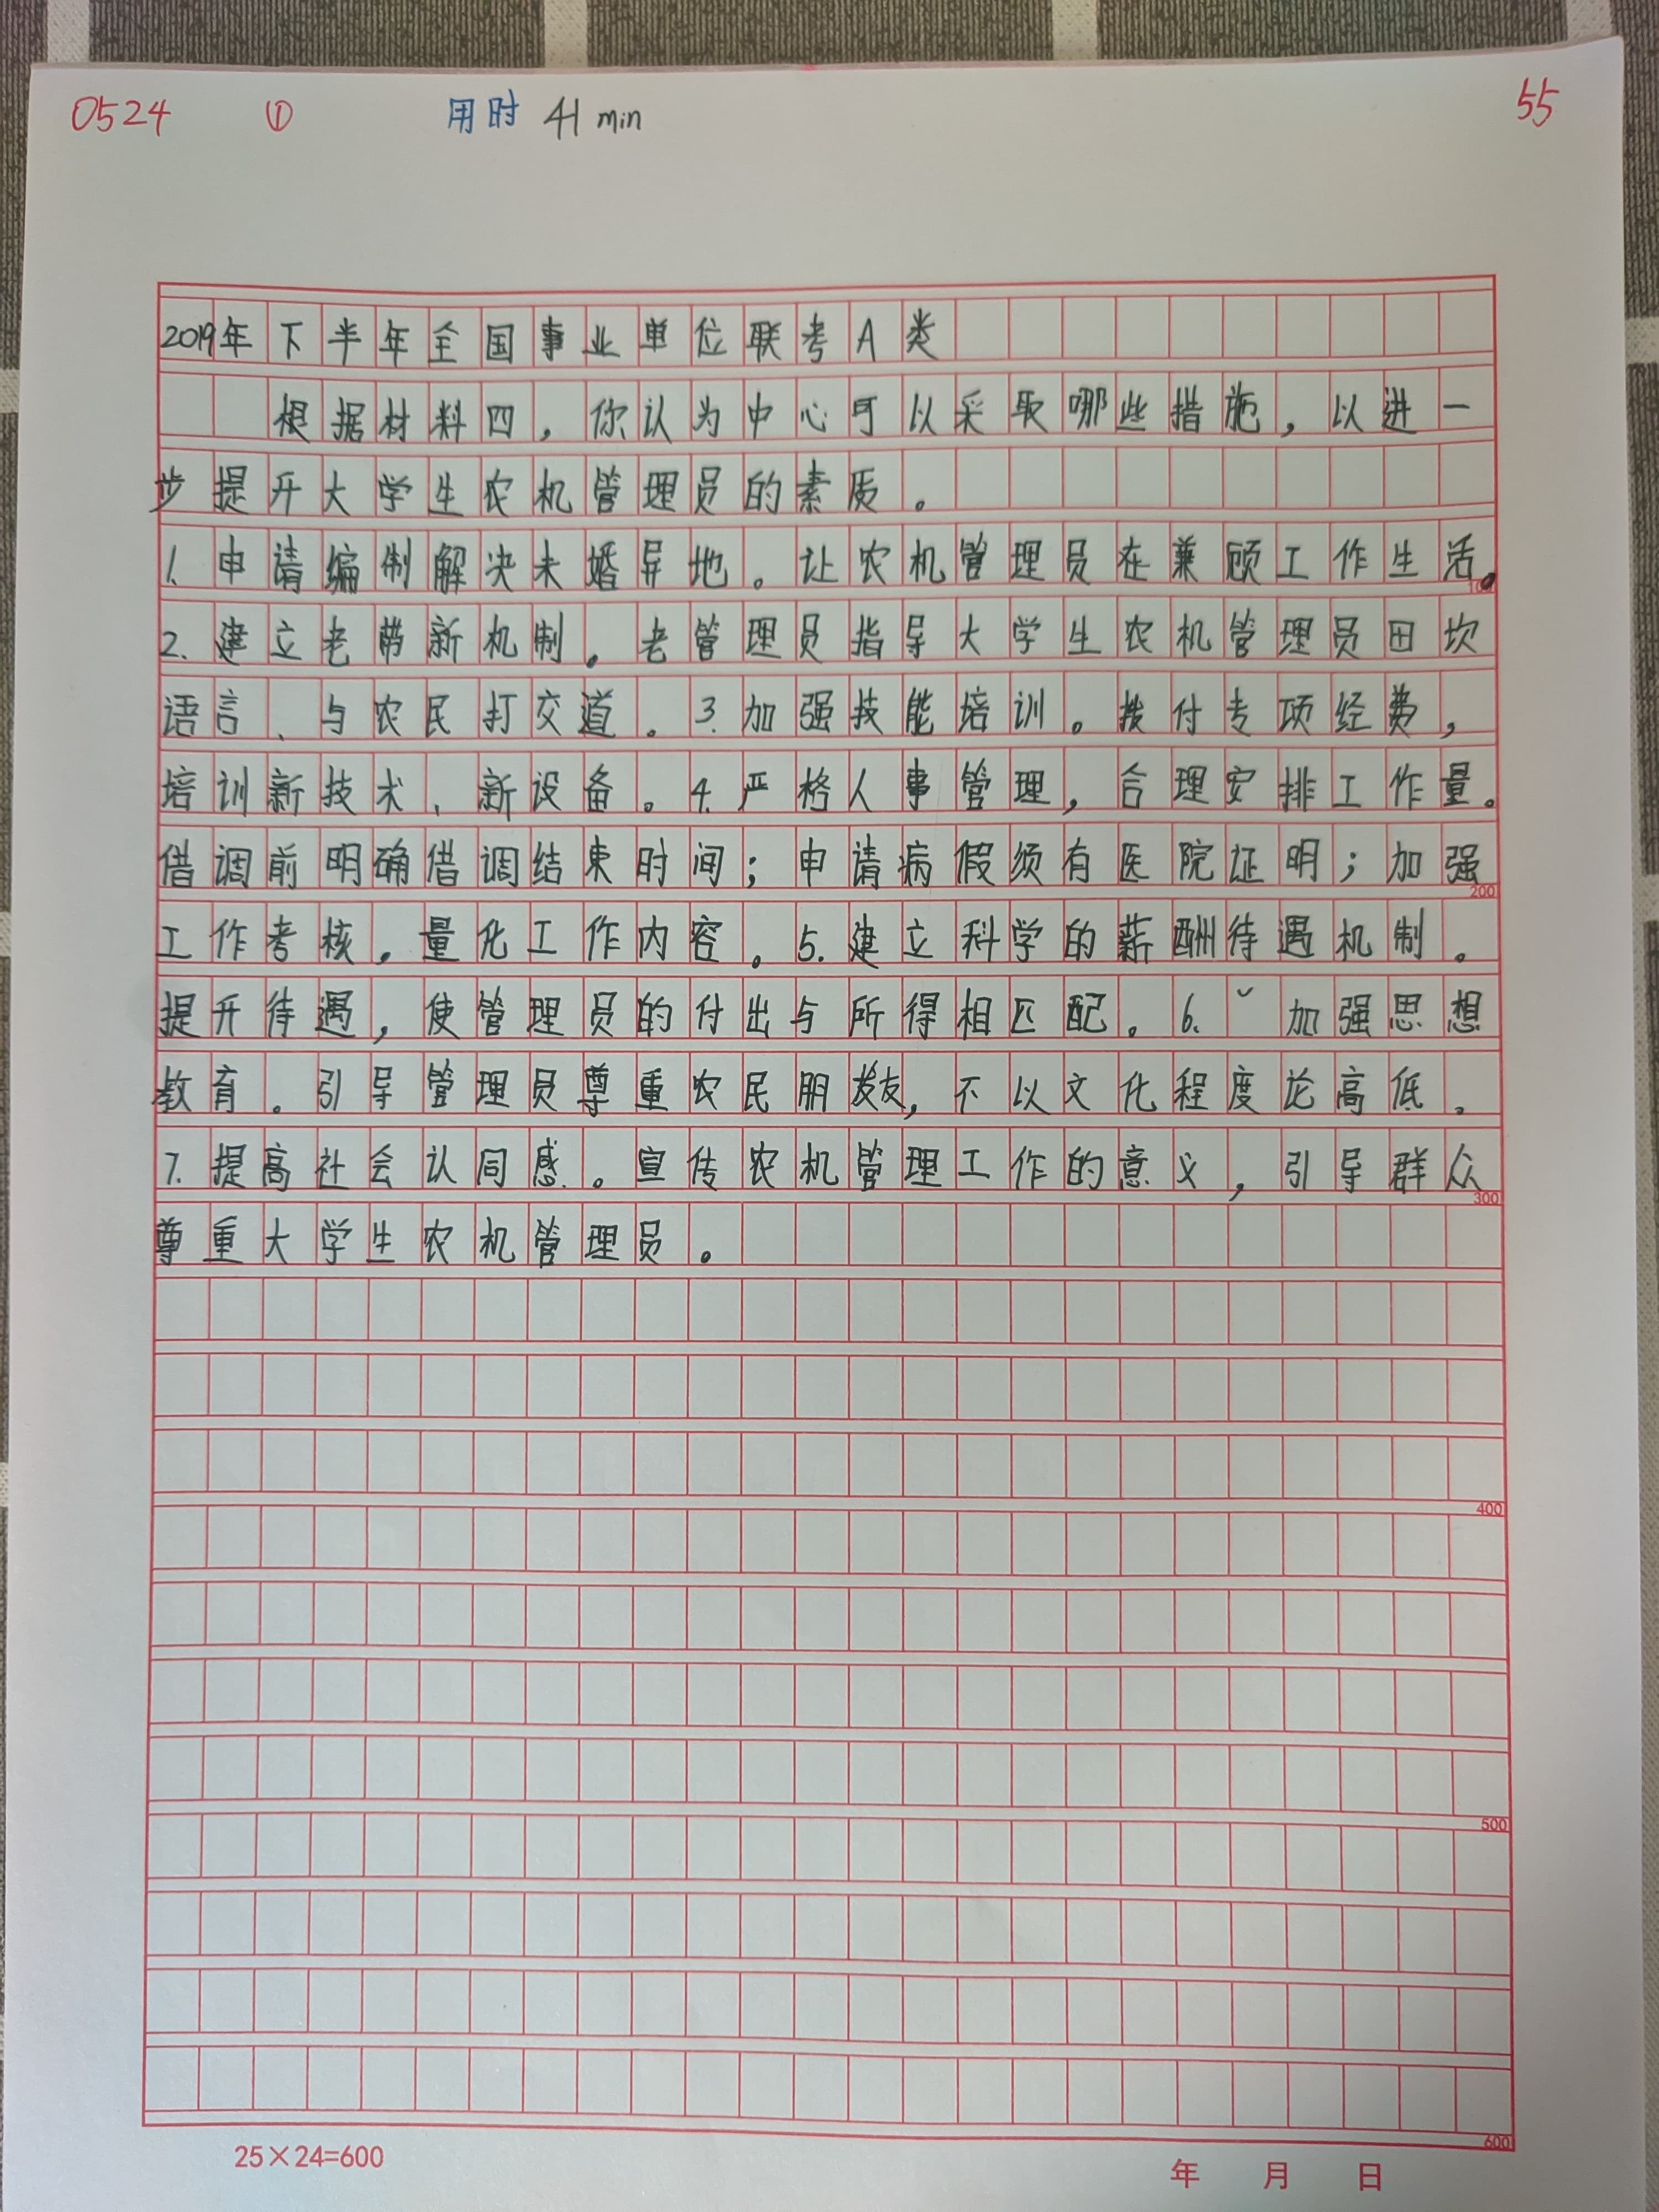 0524 ① 用时 41 min 55
2019年下半年全国事业单位联考A类
根据材料四,你认为中心可以采取哪些措施,以进一
步提升大学生农机管理员的素质。
1.申请编制解决未婚异地。让农机管理员在兼顾工作生活。
100
2.建立老带新机制。老管理员指导大学生农机管理员田坎
语言、与农民打交道。3.加强技能培训。拨付专项经费,
培训新技术、新设备。4.严格人事管理,合理安排工作量。
借调前明确借调结束时间;申请病假须有医院证明;加强
200
工作考核。量化工作内容。5.建立科学的薪酬待遇机制。
提升待遇,使管理员的付出与所得相匹配。6.加强思想
教育。引导管理员尊重农民朋友,不以文化程度论高低。
7.提高社会认同感。宣传农机管理工作的意义,引导群众
300
尊重大学生农机管理员。
400
500
600
25×24=600 年 月 日